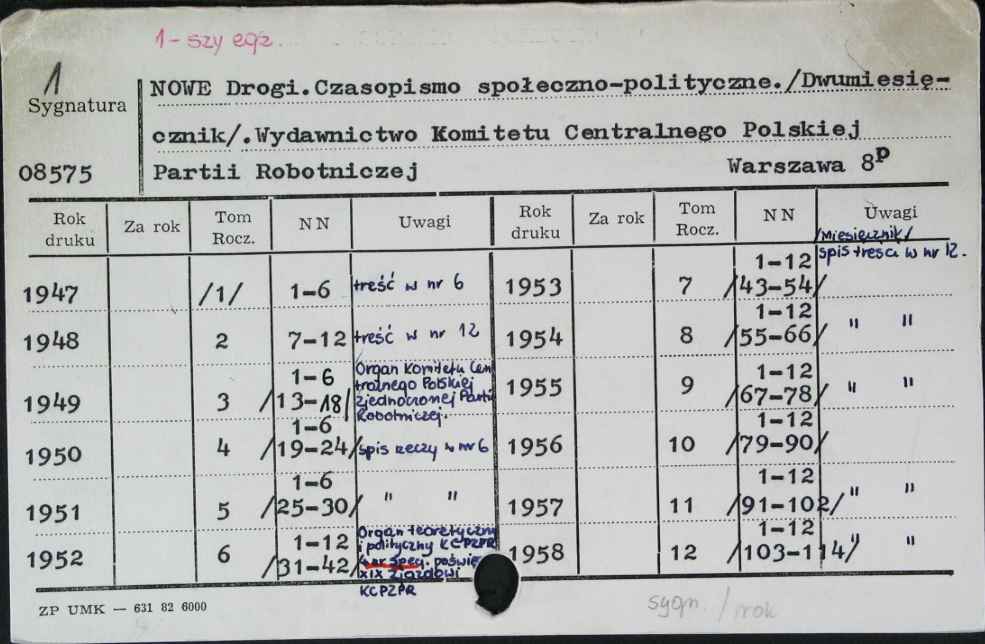 1-szy egz.
1
Sygnatura
NOWE Drogi.Czasopismo społeczno-polityczne./Dwumiesię-
cznik/.Wydawnictwo Komitetu Centralnego Polskiej
08575 Partii Robotniczej Warszawa 8p
Rok druku Za rok Tom Rocz. NN Uwagi Rok druku Za rok Tom Rocz. NN Uwagi
/Miesięcznik/
1947 /1/ 1-6 treść w nr 6 1953 7 1-12 /43-54/ spis treści w nr 12.
1948 2 7-12 treść w nr 12 1954 8 1-12 /55-66/ " "
1949 3 1-6 /13-18/ Organ Komitetu Cen
tralnego Polskiej
zjednoczonej Parti
Robotniczej. 1955 9 1-12 /67-78/ " "
1950 4 1-6 /19-24/ spis rzeczy w nr 6 1956 10 1-12 /79-90/
1951 5 1-6 /25-30/ " " 1957 11 1-12 /91-102/ " "
1952 6 1-12 /31-42/ Organ teoretyczny
i polityczny KCPZPR
nr spec. poświę
XIX Zjazdowi
KCPZPR 1958 12 1-12 /103-114/ " "
ZP UMK — 631 82 6000
sygn. / rok